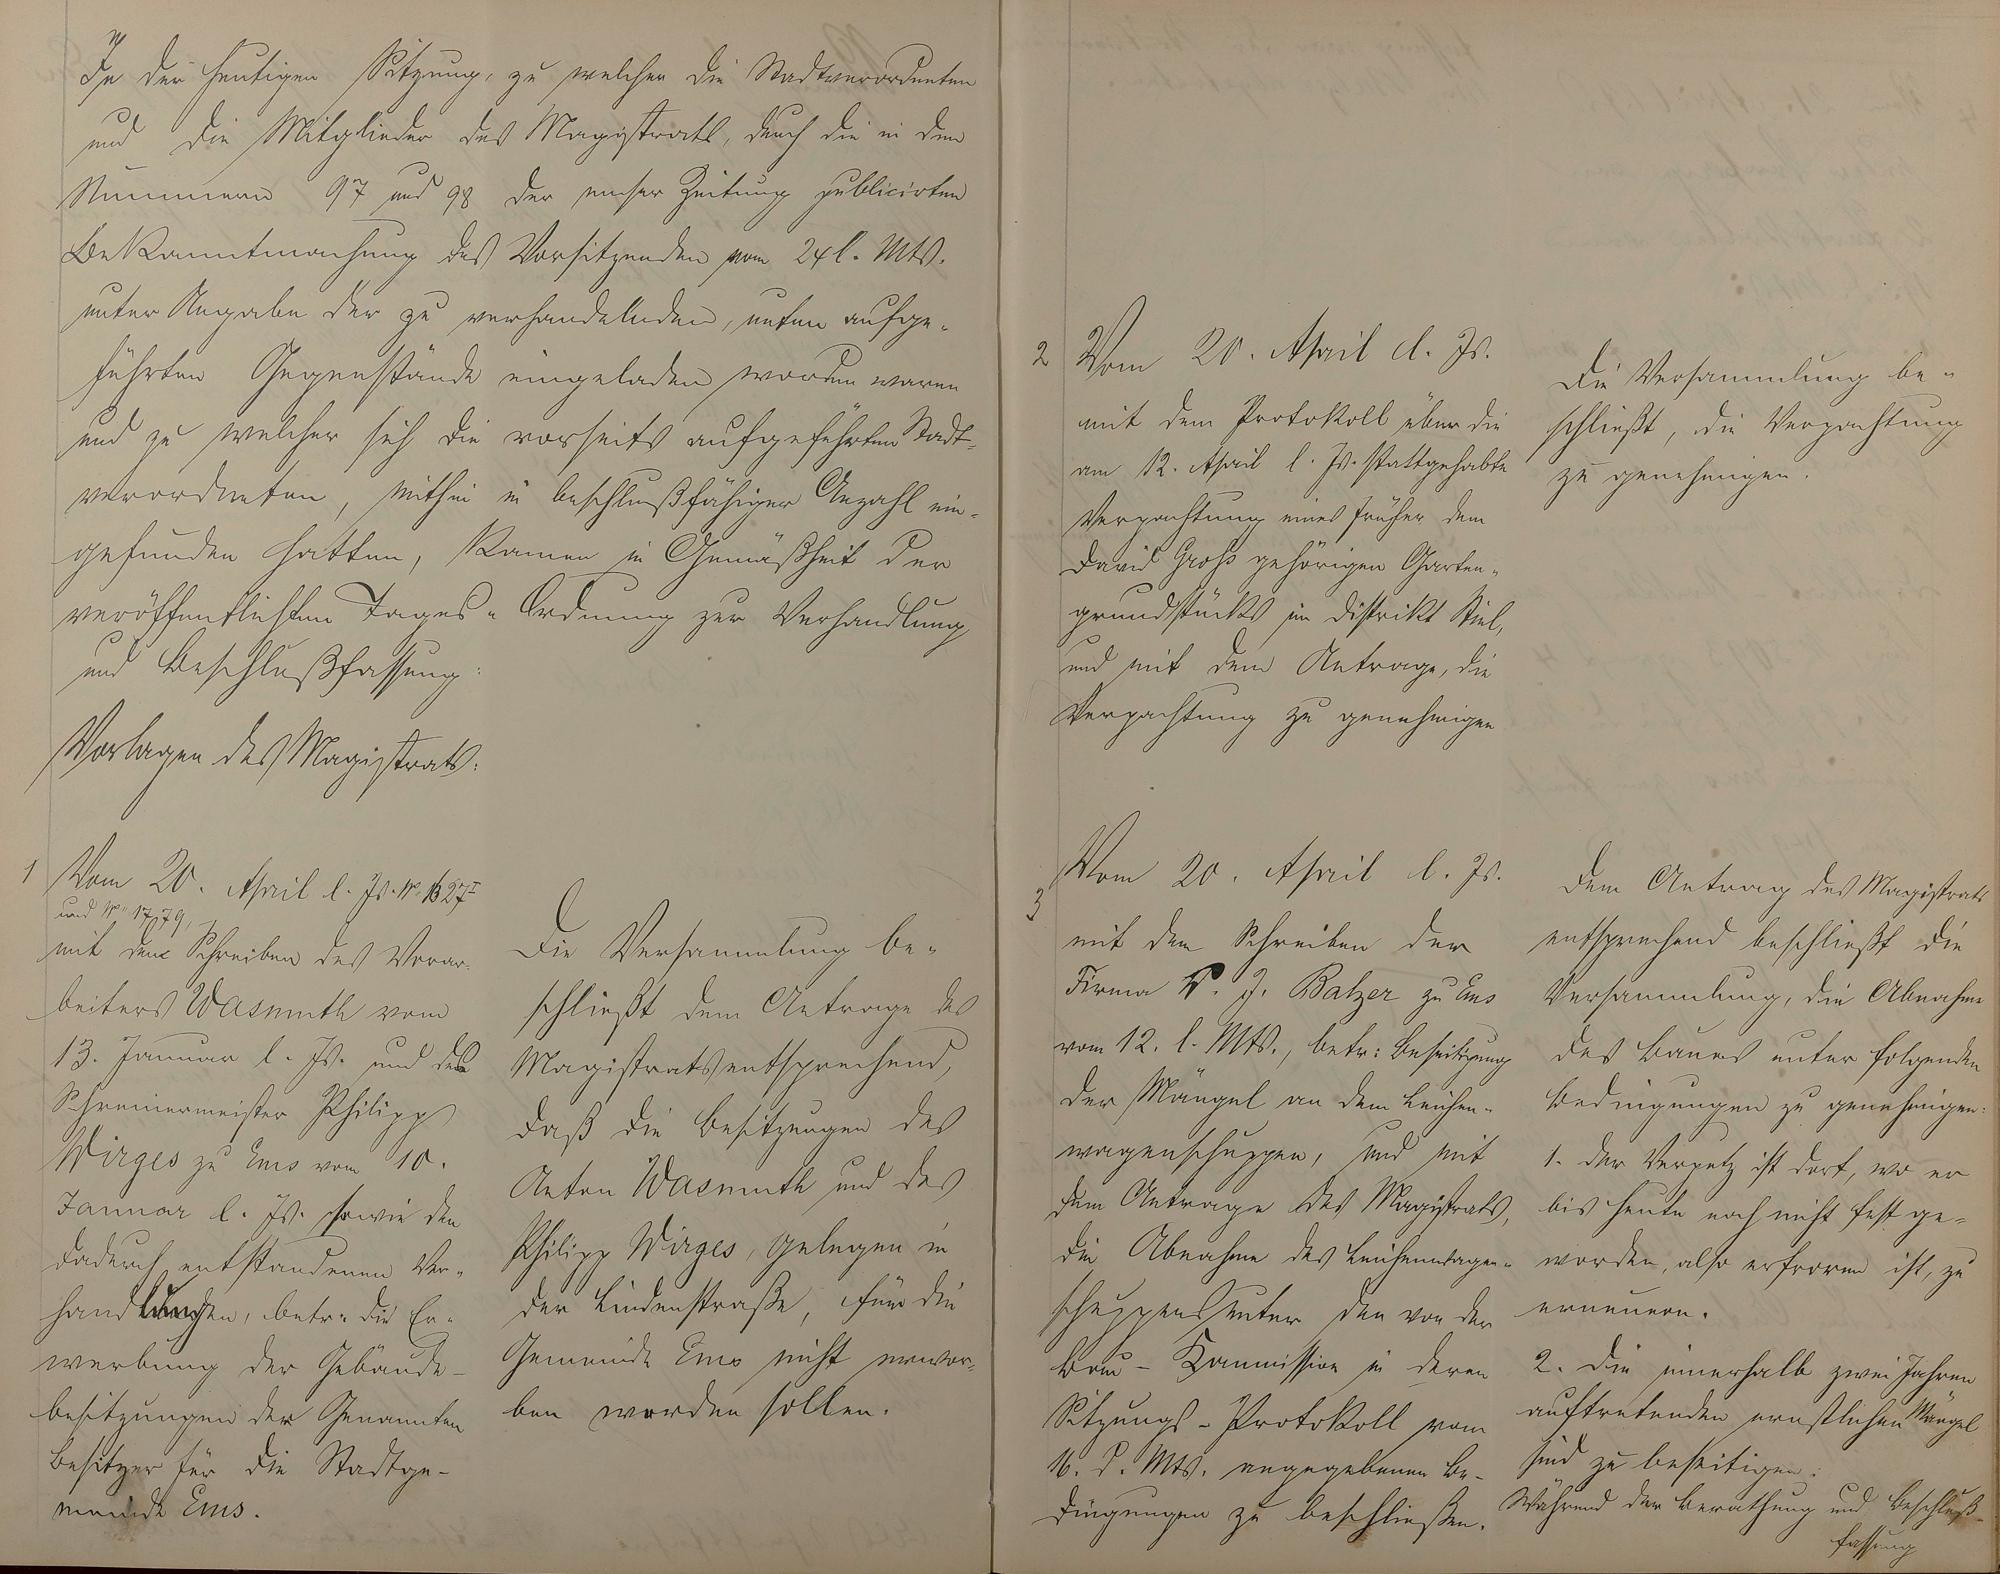 In der heutigen Sitzung, zu welcher die Stadtverordneten
und die Mitglieder des Magistrats, durch die in den
Nummern 97 und 98 der emser Zeitung publicirten
Bekanntmachung des Vorsitzenden vom 24 l. Mts.
unter Angabe der zu verhandelnden, unten aufge-
führten Gegenstände eingeladen worden waren
und zu welcher sich die vorseits aufgeführten Stadt-
verordneten, mithin in beschlußfähiger Anzahl ein-
gefunden hatten, kamen in Gemäßheit der
veröffentlichten Tages-Ordnung zur Verhandlung
und Beschlußfassung:
Vorlagen des Magistrats:
1 Vom 20. April l. Js. No 1627I
und No 1779,
mit dem Schreiben des Vorar-
beiters Wasmuth vom
13. Januar l. Js. und des
Schreinermeister Philipp
Wirges zu Ems vom 10.
Januar l. Js. sowie den
dadurch entstandenen Ver-
handlungen, betr. die Er-
werbung der Gebäude-
besitzungen der Genannten
Besitzer für die Stadtge-
meinde Ems.
Die Versammlung be-
schließt dem Antrage des
Magistrats entsprechend,
daß die Besitzungen des
Anton Wasmuth und des
Philipp Wirges, gelegen in
der Lindenstraße, für die
Gemeinde Ems nicht erwor-
ben werden sollen.
2 Vom 20. April d. Js.
mit dem Protokoll über die
am 12. April l. Js. stattgehabte
Verpachtung eines früher dem
David Groß gehörigen Garten-
grundstücks im Distrikt Kiel,
und mit dem Antrage, die
Verpachtung zu genehmigen
Die Versammlung be-
schließt, die Verpachtung
zu genehmigen.
3 Vom 20. April l. Js.
mit dem Schreiben der
Firma P. J. Balzer zu Ems
vom 12. l. Mts., betr: Beseitigung
der Mängel an dem Leichen-
wagenschuppen, und mit
dem Antrage des Magistrats,
die Abnahme des Leichenwagen-
schuppens unter den von der
Bau-Kommission in deren
Sitzungs-Protokoll vom
16. d. Mts. angegebenen Be-
dingungen zu beschließen.
Dem Antrag des Magistrats
entsprechend beschließt die
Versammlung, die Abnahme
des Baues unter folgenden
Bedingungen zu genehmigen:
1. der Verputz ist dort, wo er
bis heute noch nicht fest ge-
worden, also erfroren ist, zu
erneuern.
2. Die innerhalb zwei Jahren
auftretenden ernstlichen Mängel
sind zu beseitigen.
Während der Berathung und Beschluß-
fassung